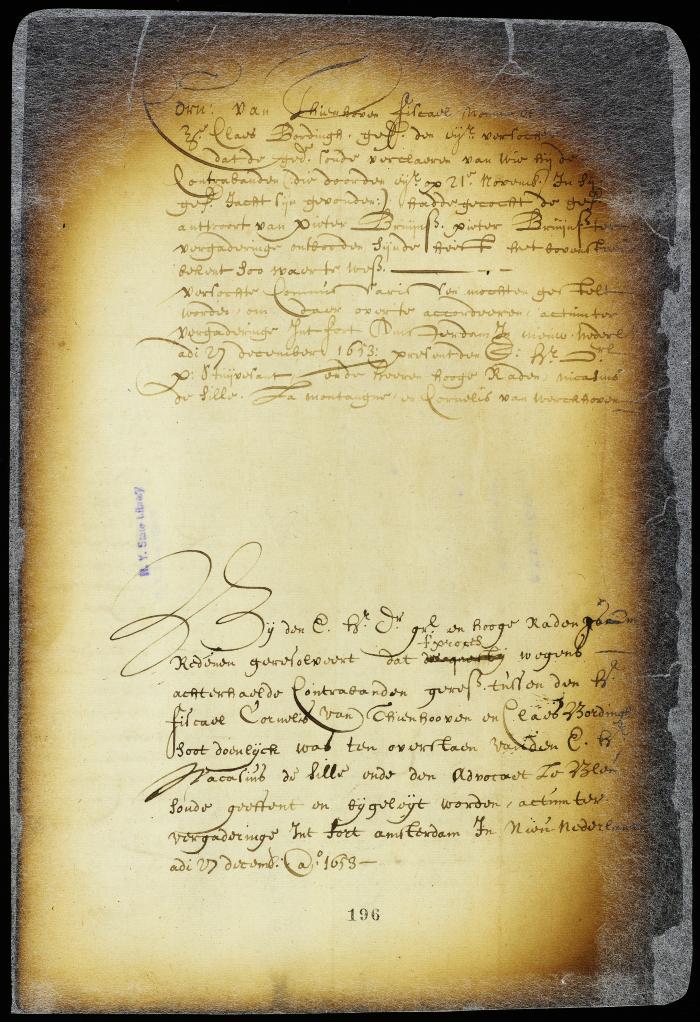 Corn: van Thienhoven fiscael
Claes Bordingh. geß. den eyßr versocht
dat de gedde soude verclaeren van wie hij de
Contrabanden (die door den eyßr op 21en Novemb. In sijn
geß. Jacht sijn gevonden:) hadde gecocht de geß
antwoort van pieter Bruijnß. pieter Bruijnß ter
vergaderinge ontbooden sijnde heeft het bovenst
bekent soo waer te weß.
versochte Commissarissen mochten gestelt
worden, om daer over te accordeeren, actum ter
vergaderinge Int fort Amsterdam In nieuw nederl
adi 27 december 1653: presenten E: Hr. Gnrl
P: Stuijvesant ende heeren hooge Raden, nicasius
de Sille. La montangne, en Cornelis van werckhoven
N. Y. State Library
Bij den E. Hr. Dr grl. en hooge Raden
t'proces
Redenen geresolveert dat wegens
achterhaelde Contrabanden gereß. tussen den Hr
fiscael Cornelis van Thienhooven en Claes Bordingh
soot doenlijck was ten overstaen van den E. Hr
Nacasius de Sille ende den Advocaet Le Bleu
soude geeffent en bijgeleijt worden, actum ter
vergaderinge Int fort amsterdam In Nieu Nederlandt
adi 27 decemb: Ao 1653
196